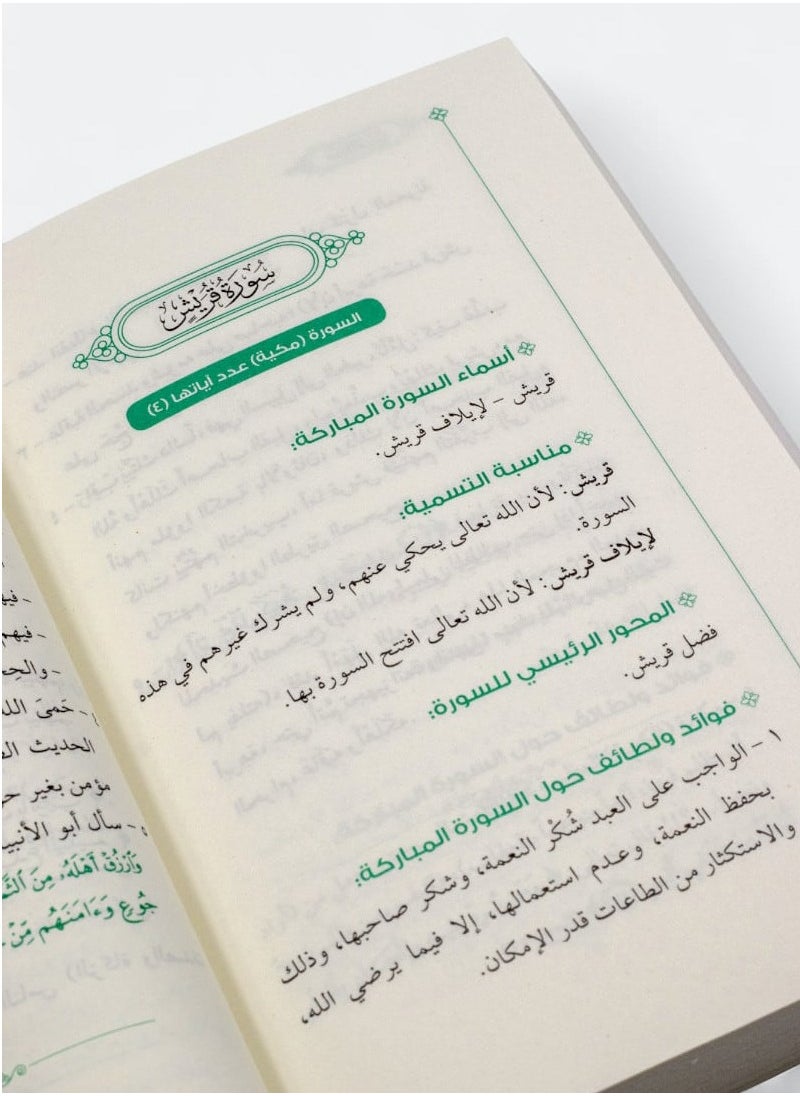 سُورَةُ قُرَيْشٍ
السورة (مكية) عدد آياتها (٤)
أسماء السورة المباركة:
قريش – لإيلاف قريش.
مناسبة التسمية:
قريش: لأن الله تعالى يحكي عنهم، ولم يشرك غيرهم في هذه
السورة.
لإيلاف قريش: لأن الله تعالى افتتح السورة بها.
المحور الرئيسي للسورة:
فضل قريش.
فوائد ولطائف حول السورة المباركة:
١ – الواجب على العبد شُكْر النعمة، وشكر صاحبها، وذلك
بحفظ النعمة، وعدم استعمالها، إلا فيما يرضي الله،
والاستكثار من الطاعات قدر الإمكان.
- فيهم
- حَمىَ
الحديث
مؤمن بغير
- سأل أبو
وَٱرْزُقْ أَهْلَهُۥ مِنَ
جُوعٍ وَءَامَنَهُم مِّنْ